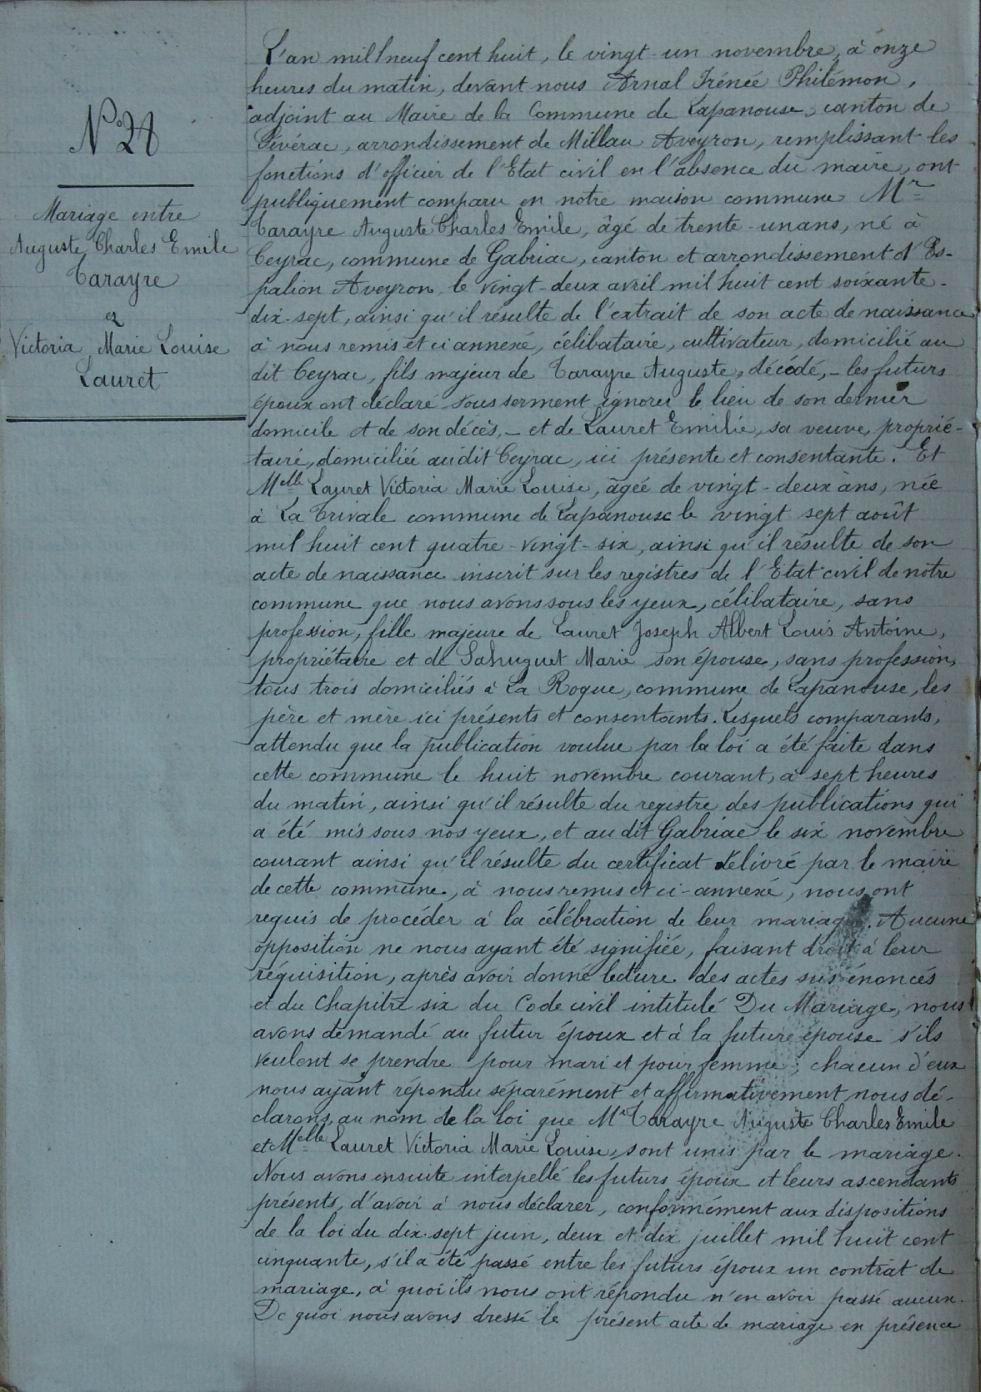 N° 28
Mariage entre
Auguste Charles Emile
Tarayre
et
Victoria Marie Louise
Lauret
L'an mil neuf cent huit, le vingt-un novembre, à onze
heures du matin, devant nous Arnal Irénée Philémon,
adjoint au Maire de la Commune de Lapanouse, canton de
Sévérac, arrondissement de Millau Aveyron, remplissant les
fonctions d'officier de l'Etat civil en l'absence du maire, ont
publiquement comparu en notre maison commune Mr
Tarayre Auguste Charles Emile, âgé de trente-un ans, né à
Ceyrac, commune de Gabriac, canton et arrondissement d'Es-
palion Aveyron le vingt-deux avril mil huit cent soixante-
dix-sept, ainsi qu'il résulte de l'extrait de son acte de naissance
à nous remis et ci annexé, célibataire, cultivateur, domicilié au
dit Ceyrac, fils majeur de Tarayre Auguste, décédé, - les futurs
époux ont déclaré sous serment ignorer le lieu de son dernier
domicile et de son décès, - et de Lauret Emilie, sa veuve, proprié-
taire, domiciliée audit Ceyrac, ici présente et consentante. Et
Melle Lauret Victoria Marie Louise, âgée de vingt-deux ans, née
à La Trivale commune de Lapanouse le vingt sept août
mil huit cent quatre-vingt-six, ainsi qu'il résulte de son
acte de naissance inscrit sur les registres de l'Etat civil de notre
commune que nous avons sous les yeux, célibataire, sans
profession, fille majeure de Lauret Joseph Albert Louis Antoine,
propriétaire et de Sahuguet Marie son épouse, sans profession,
tous trois domiciliés à La Roque, commune de Lapanouse, les
père et mère ici présents et consentants. Lesquels comparants,
attendu que la publication voulue par la loi a été faite dans
cette commune le huit novembre courant, à sept heures
du matin, ainsi qu'il résulte du registre des publications qui
a été mis sous nos yeux, et au dit Gabriac le six novembre
courant ainsi qu'il résulte du certificat délivré par le maire
de cette commune, à nous remis et ci-annexé, nous ont
requis de procéder à la célébration de leur mariage. Aucune
opposition ne nous ayant été signifiée, faisant droit à leur
réquisition, après avoir donné lecture des actes sus énoncés
et du Chapitre six du Code civil intitulé Du Mariage, nous
avons demandé au futur époux et à la future épouse s'ils
veulent se prendre pour mari et pour femme; chacun d'eux
nous ayant répondu séparément et affirmativement nous dé-
clarons au nom de la loi que Mr Tarayre Auguste Charles Emile
et Melle Lauret Victoria Marie Louise, sont unis par le mariage.
Nous avons ensuite interpellé les futurs époux et leurs ascendants
présents, d'avoir à nous déclarer, conformément aux dispositions
de la loi du dix-sept juin, deux et dix juillet mil huit cent
cinquante, s'il a été passé entre les futurs époux un contrat de
mariage, à quoi ils nous ont répondu n'en avoir passé aucun.
De quoi nous avons dressé le présent acte de mariage en présence